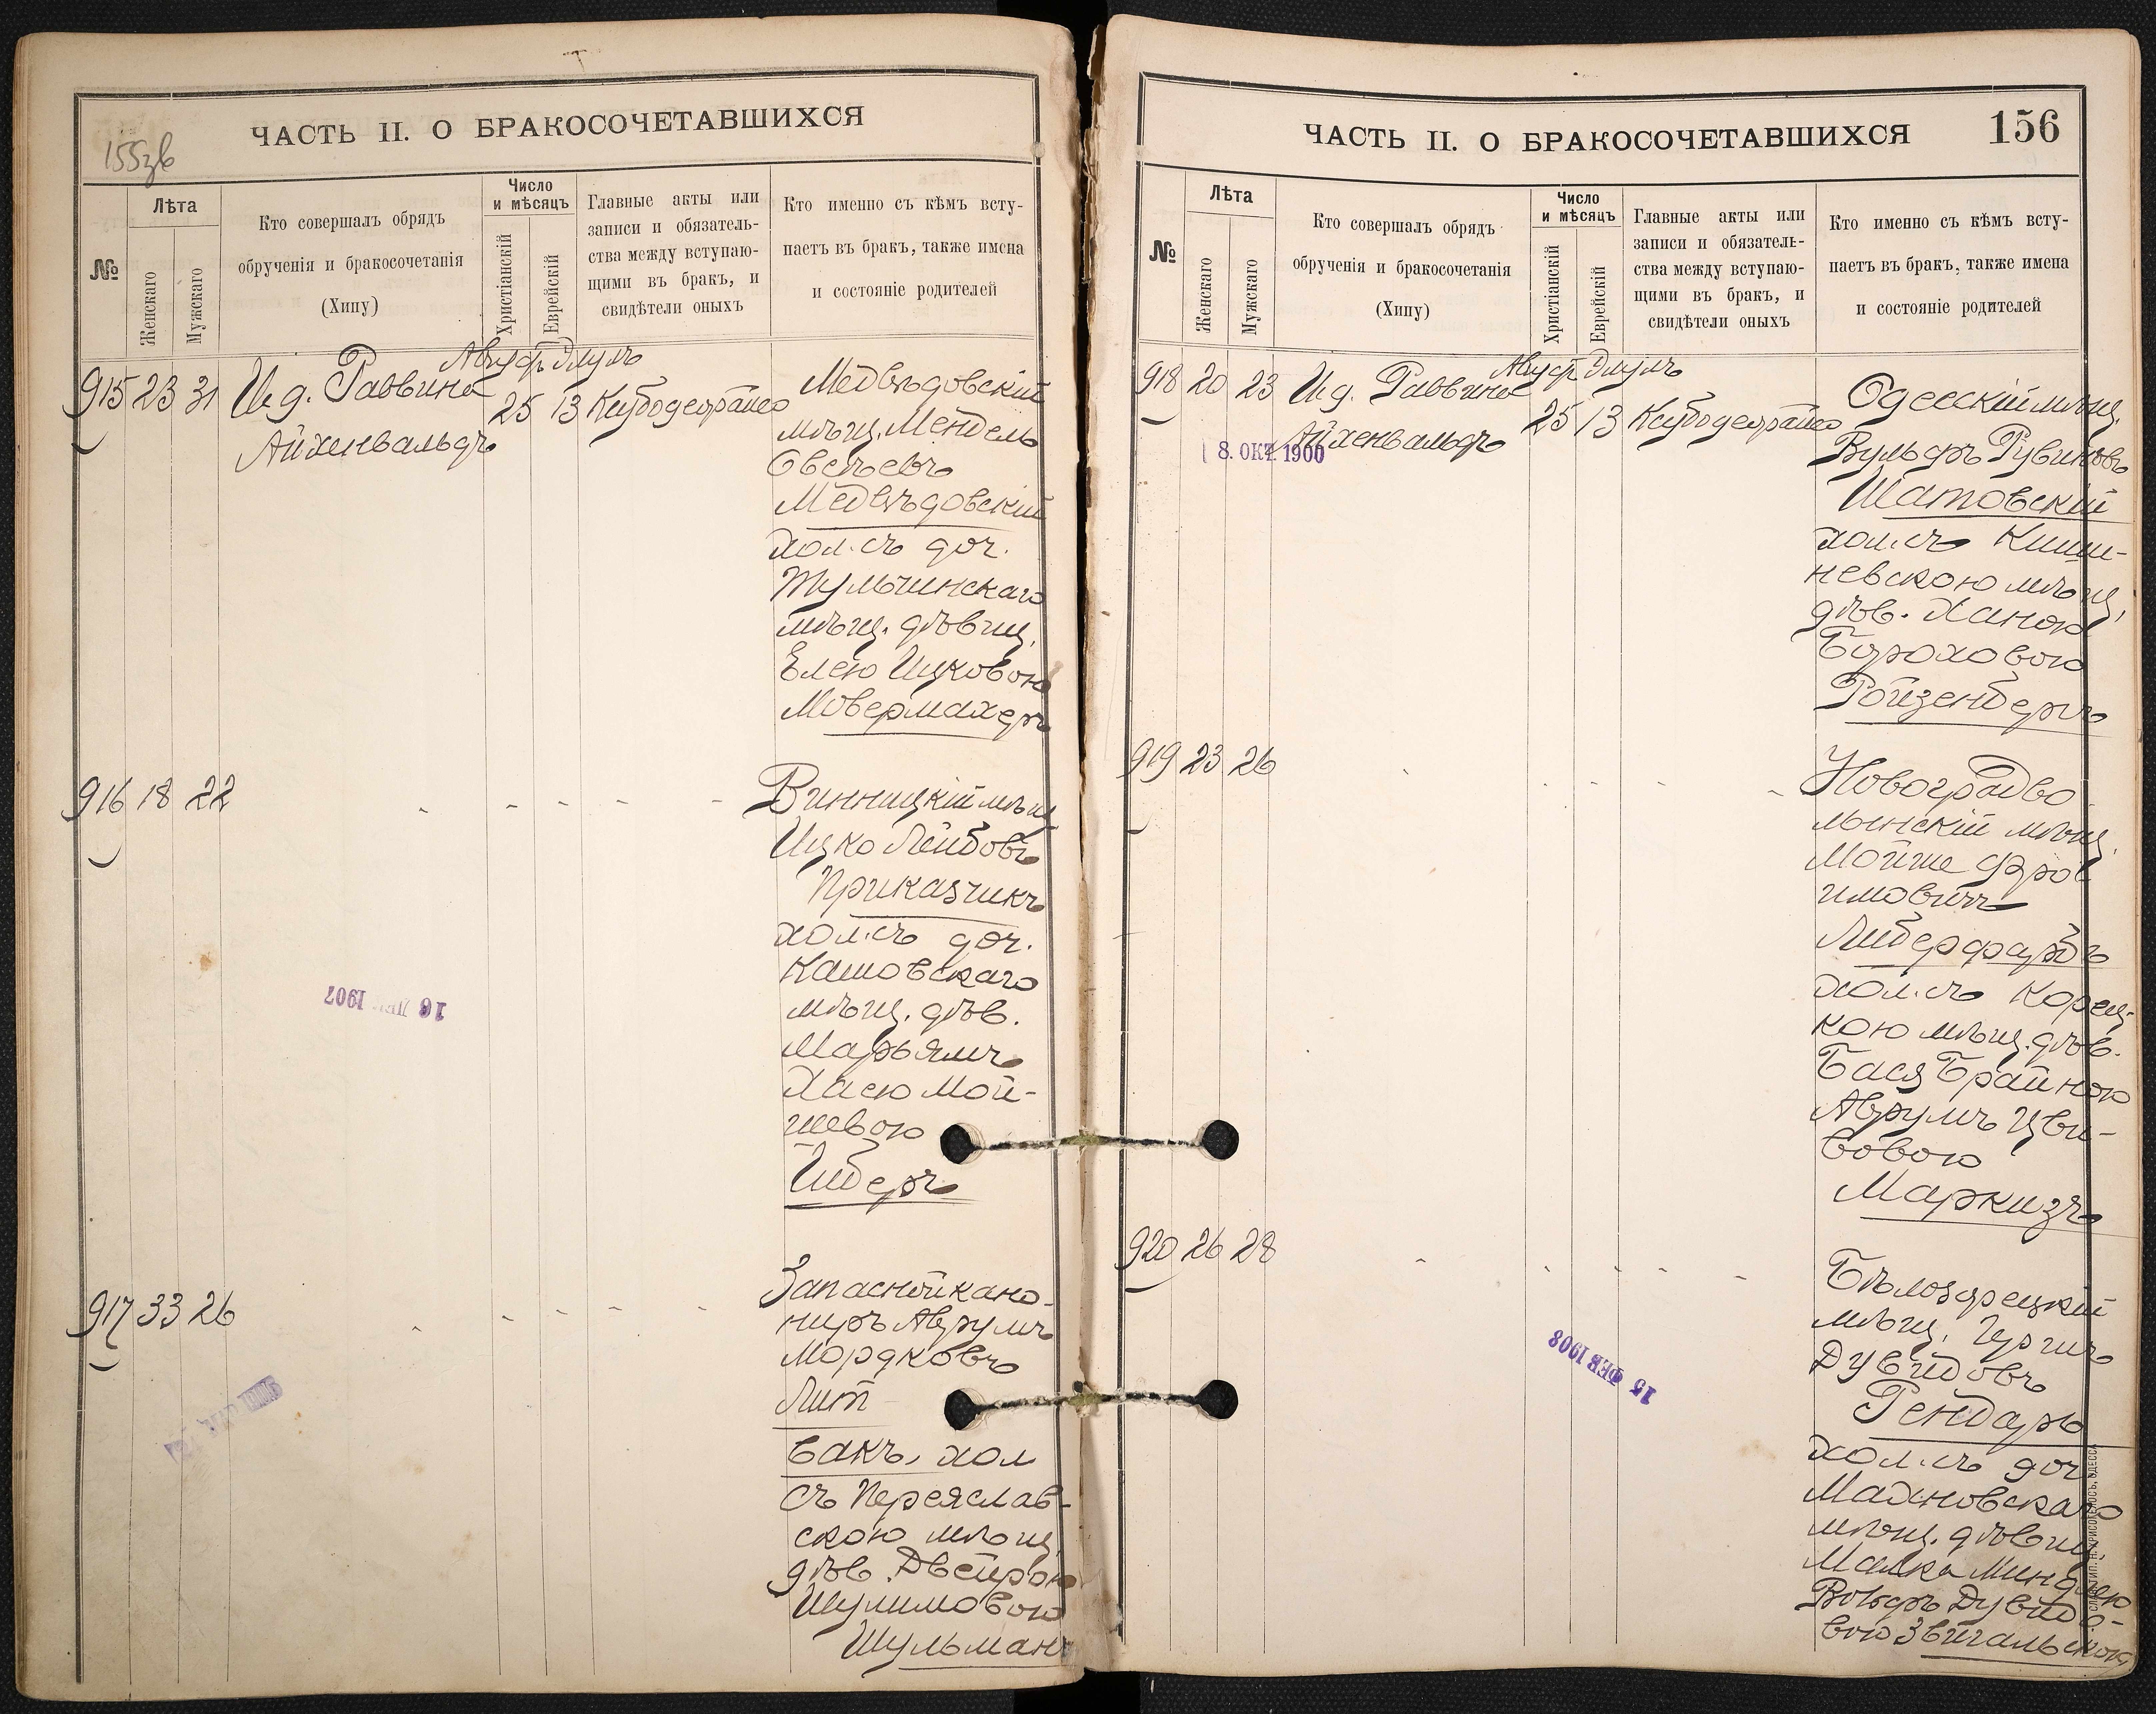 ЧАСТЬ II. О БРАКОСОЧЕТАВШИХСЯ
155зв
№
Лѣта
Женскаго
Мужскаго
Кто совершалъ обрядъ
обрученія и бракосочетанія
(Хипу)
Число
и мѣсяцъ
Христіанскій
Еврейскій
Главные акты или
записи и обязатель-
ства между вступаю-
щими въ бракъ, и
свидѣтели оныхъ
Кто именно съ кѣмъ всту-
паетъ въ бракъ, также имена
и состояніе родителей
Август Элулъ
915 23 31 И.д. Раввина 25 13
Айхенвальдъ
Медвѣдовскій
мѣщ. Мендель
Овсѣевъ
Медвѣдовскій
хол. съ доч.
Тульчинскаго
мѣщ. дѣвиц.
Елею Ицковою
Мовермахеръ
916 18 22 - - - - -
Винницкій мѣщ
Ицко Лейбовъ
Приказчикъ
хол. съ доч.
Кашовскаго
мѣщ. дѣв.
Марьямъ
Хасю Мой-
шевою
Иберъ
16 1907
917 33 26 - - - - -
Запасной кано-
ниръ Аврумъ
Мордковъ
Лит
вакъ, хол
съ Переяслав-
скою мѣщ
дѣв. Двейрою
Шулимовою
Шульманъ
ЧАСТЬ II. О БРАКОСОЧЕТАВШИХСЯ
156
№
Лѣта
Женскаго
Мужскаго
Кто совершалъ обрядъ
обрученія и бракосочетанія
(Хипу)
Число
и мѣсяцъ
Христіанскій
Еврейскій
Главные акты или
записи и обязатель-
ства между вступаю-
щими въ бракъ, и
свидѣтели оныхъ
Кто именно съ кѣмъ всту-
паетъ въ бракъ, также имена
и состояніе родителей
Август Элулъ
918 20 23 И.д. Раввина 25 13
Айхенвальдъ
8. ОКТ. 1900
Одесскій мѣщ.
Вульфъ Рувиновъ
Шатовскій
хол. съ Киши-
невскою мѣщ,
дѣв. Ханою
Бороховою
Ройзенбергъ
919 23 26 - - - - -
Новоградво
лынскій мѣщ.
Мойше Фро
имовичъ
Либерфарбъ
хол. съ Корец-
кою мѣщ. дѣв.
Бася Брайною
Аврумъ Цви-
вовою
Маркизъ
920 26 28 - - - - -
Бѣлозерецкій
мѣщ. Гершъ
Дувидовъ
Гендаръ
хол. съ доч
Махновскаго
мѣщ. дѣвиц.
Малка Миндлею
Вольфъ Дувидо-
вою Звигальскою
15 ФЕВ 1908